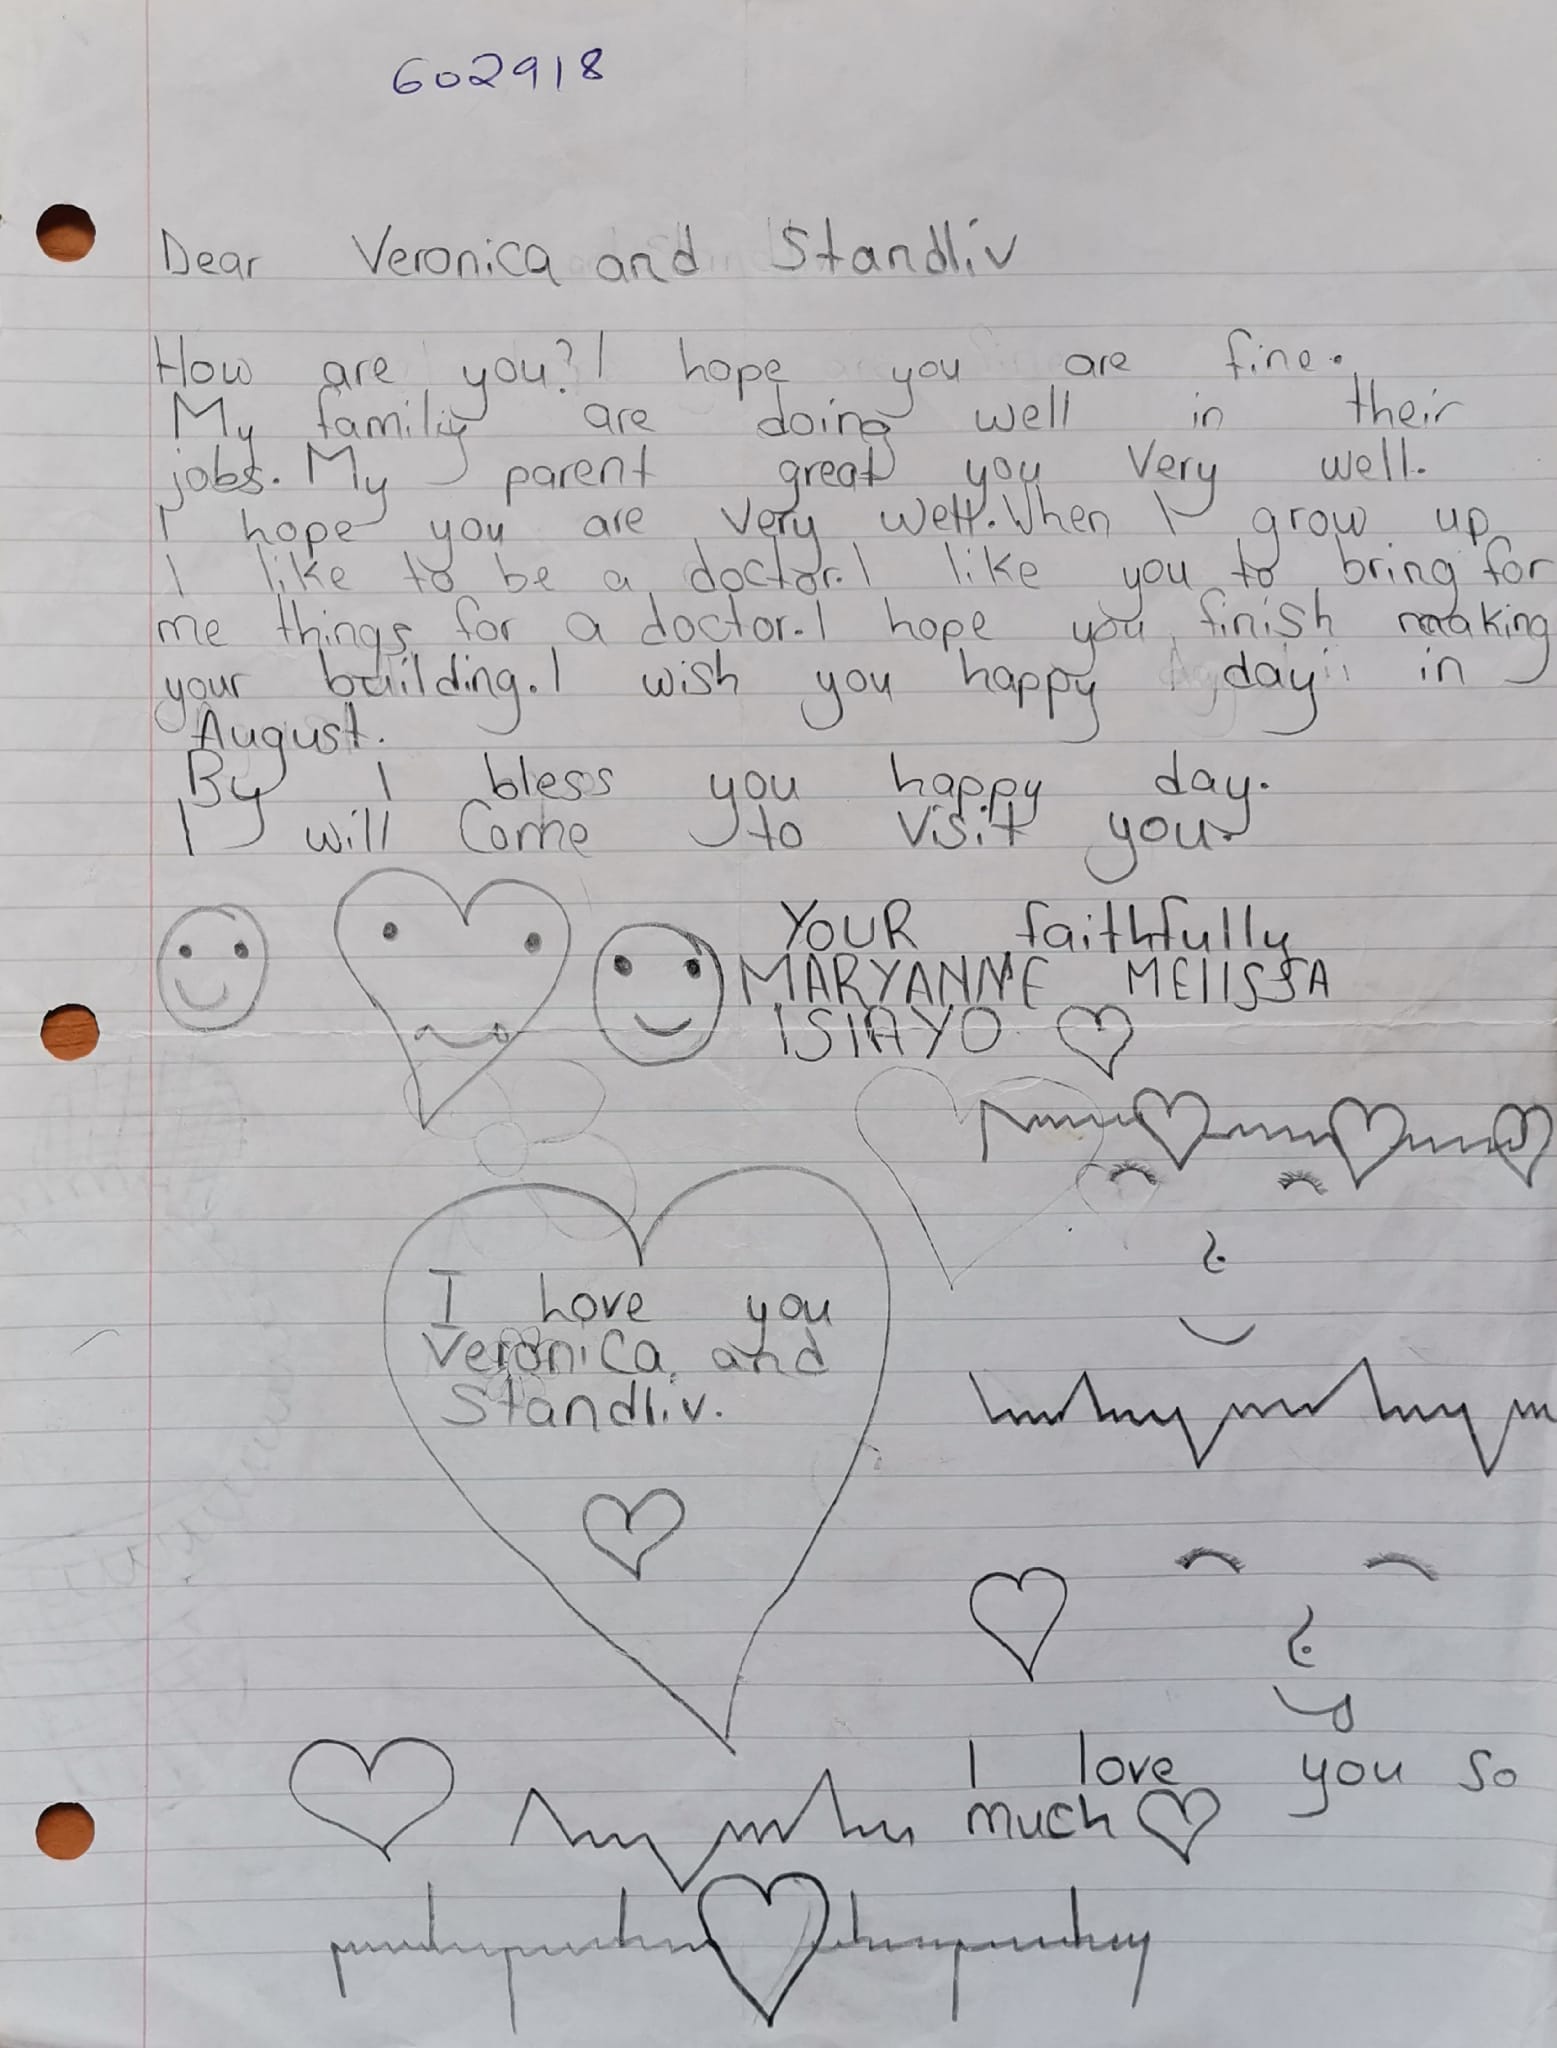 602918
Dear Veronica and Standliv
How are you? I hope you are fine.
My familiy are doing well in their
jobs. My parent great you very well.
I hope you are very well. When I grow up
I like to be a doctor. I like you to bring for
me things for a doctor. I hope you finish making
your building. I wish you happy day in
August.
By I bless you happy day.
I will Come to visit you.
YOUR faithfully
MARYANNE MElISSA
ISIAYO
I love you
Veronica and
Standliv.
I love you so
much